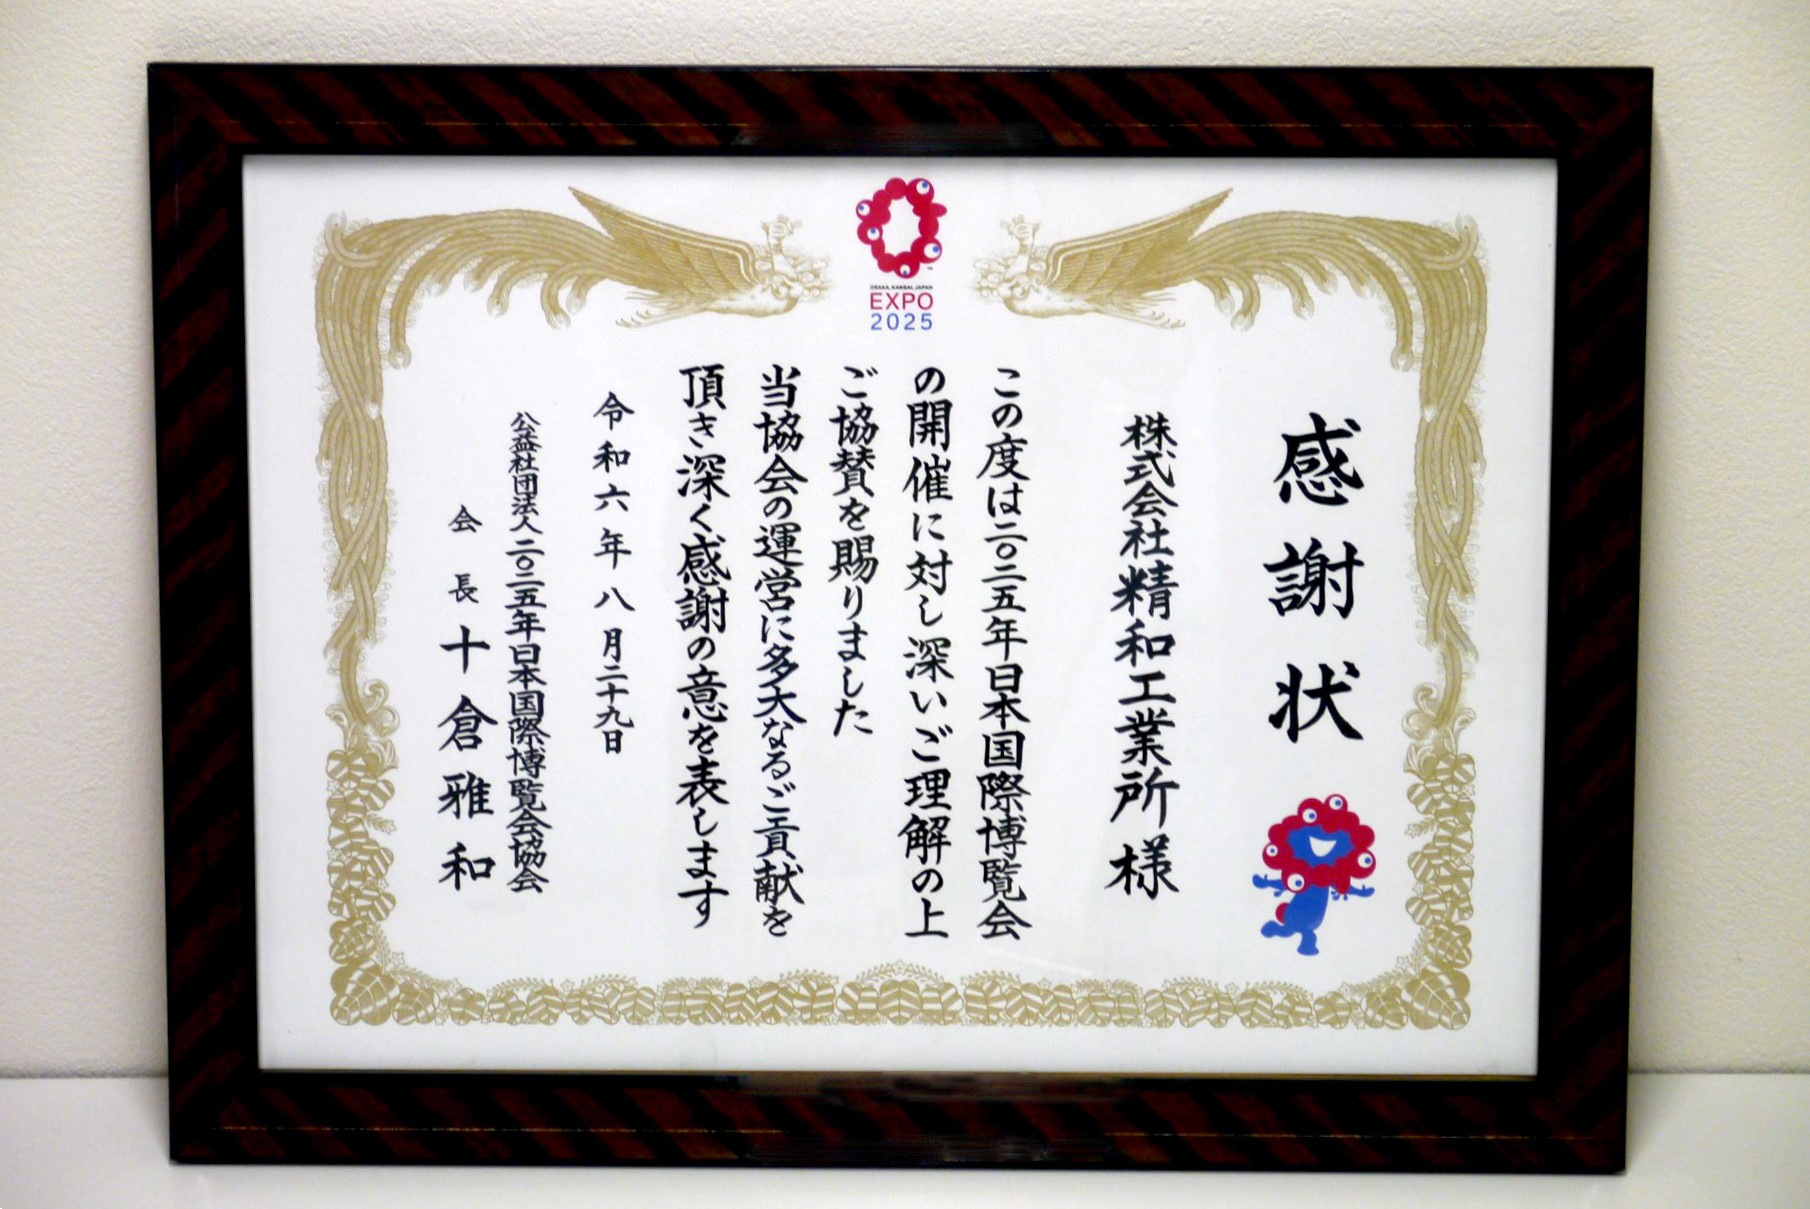 OSAKA, KANSAI, JAPAN
EXPO
2025
感謝状
株式会社精和工業所様
この度は二〇二五年日本国際博覧会
の開催に対し深いご理解の上
ご協賛を賜りました
当協会の運営に多大なるご貢献を
頂き深く感謝の意を表します
令和六年八月二十九日
公益社団法人二〇二五年日本国際博覧会協会
会長十倉雅和